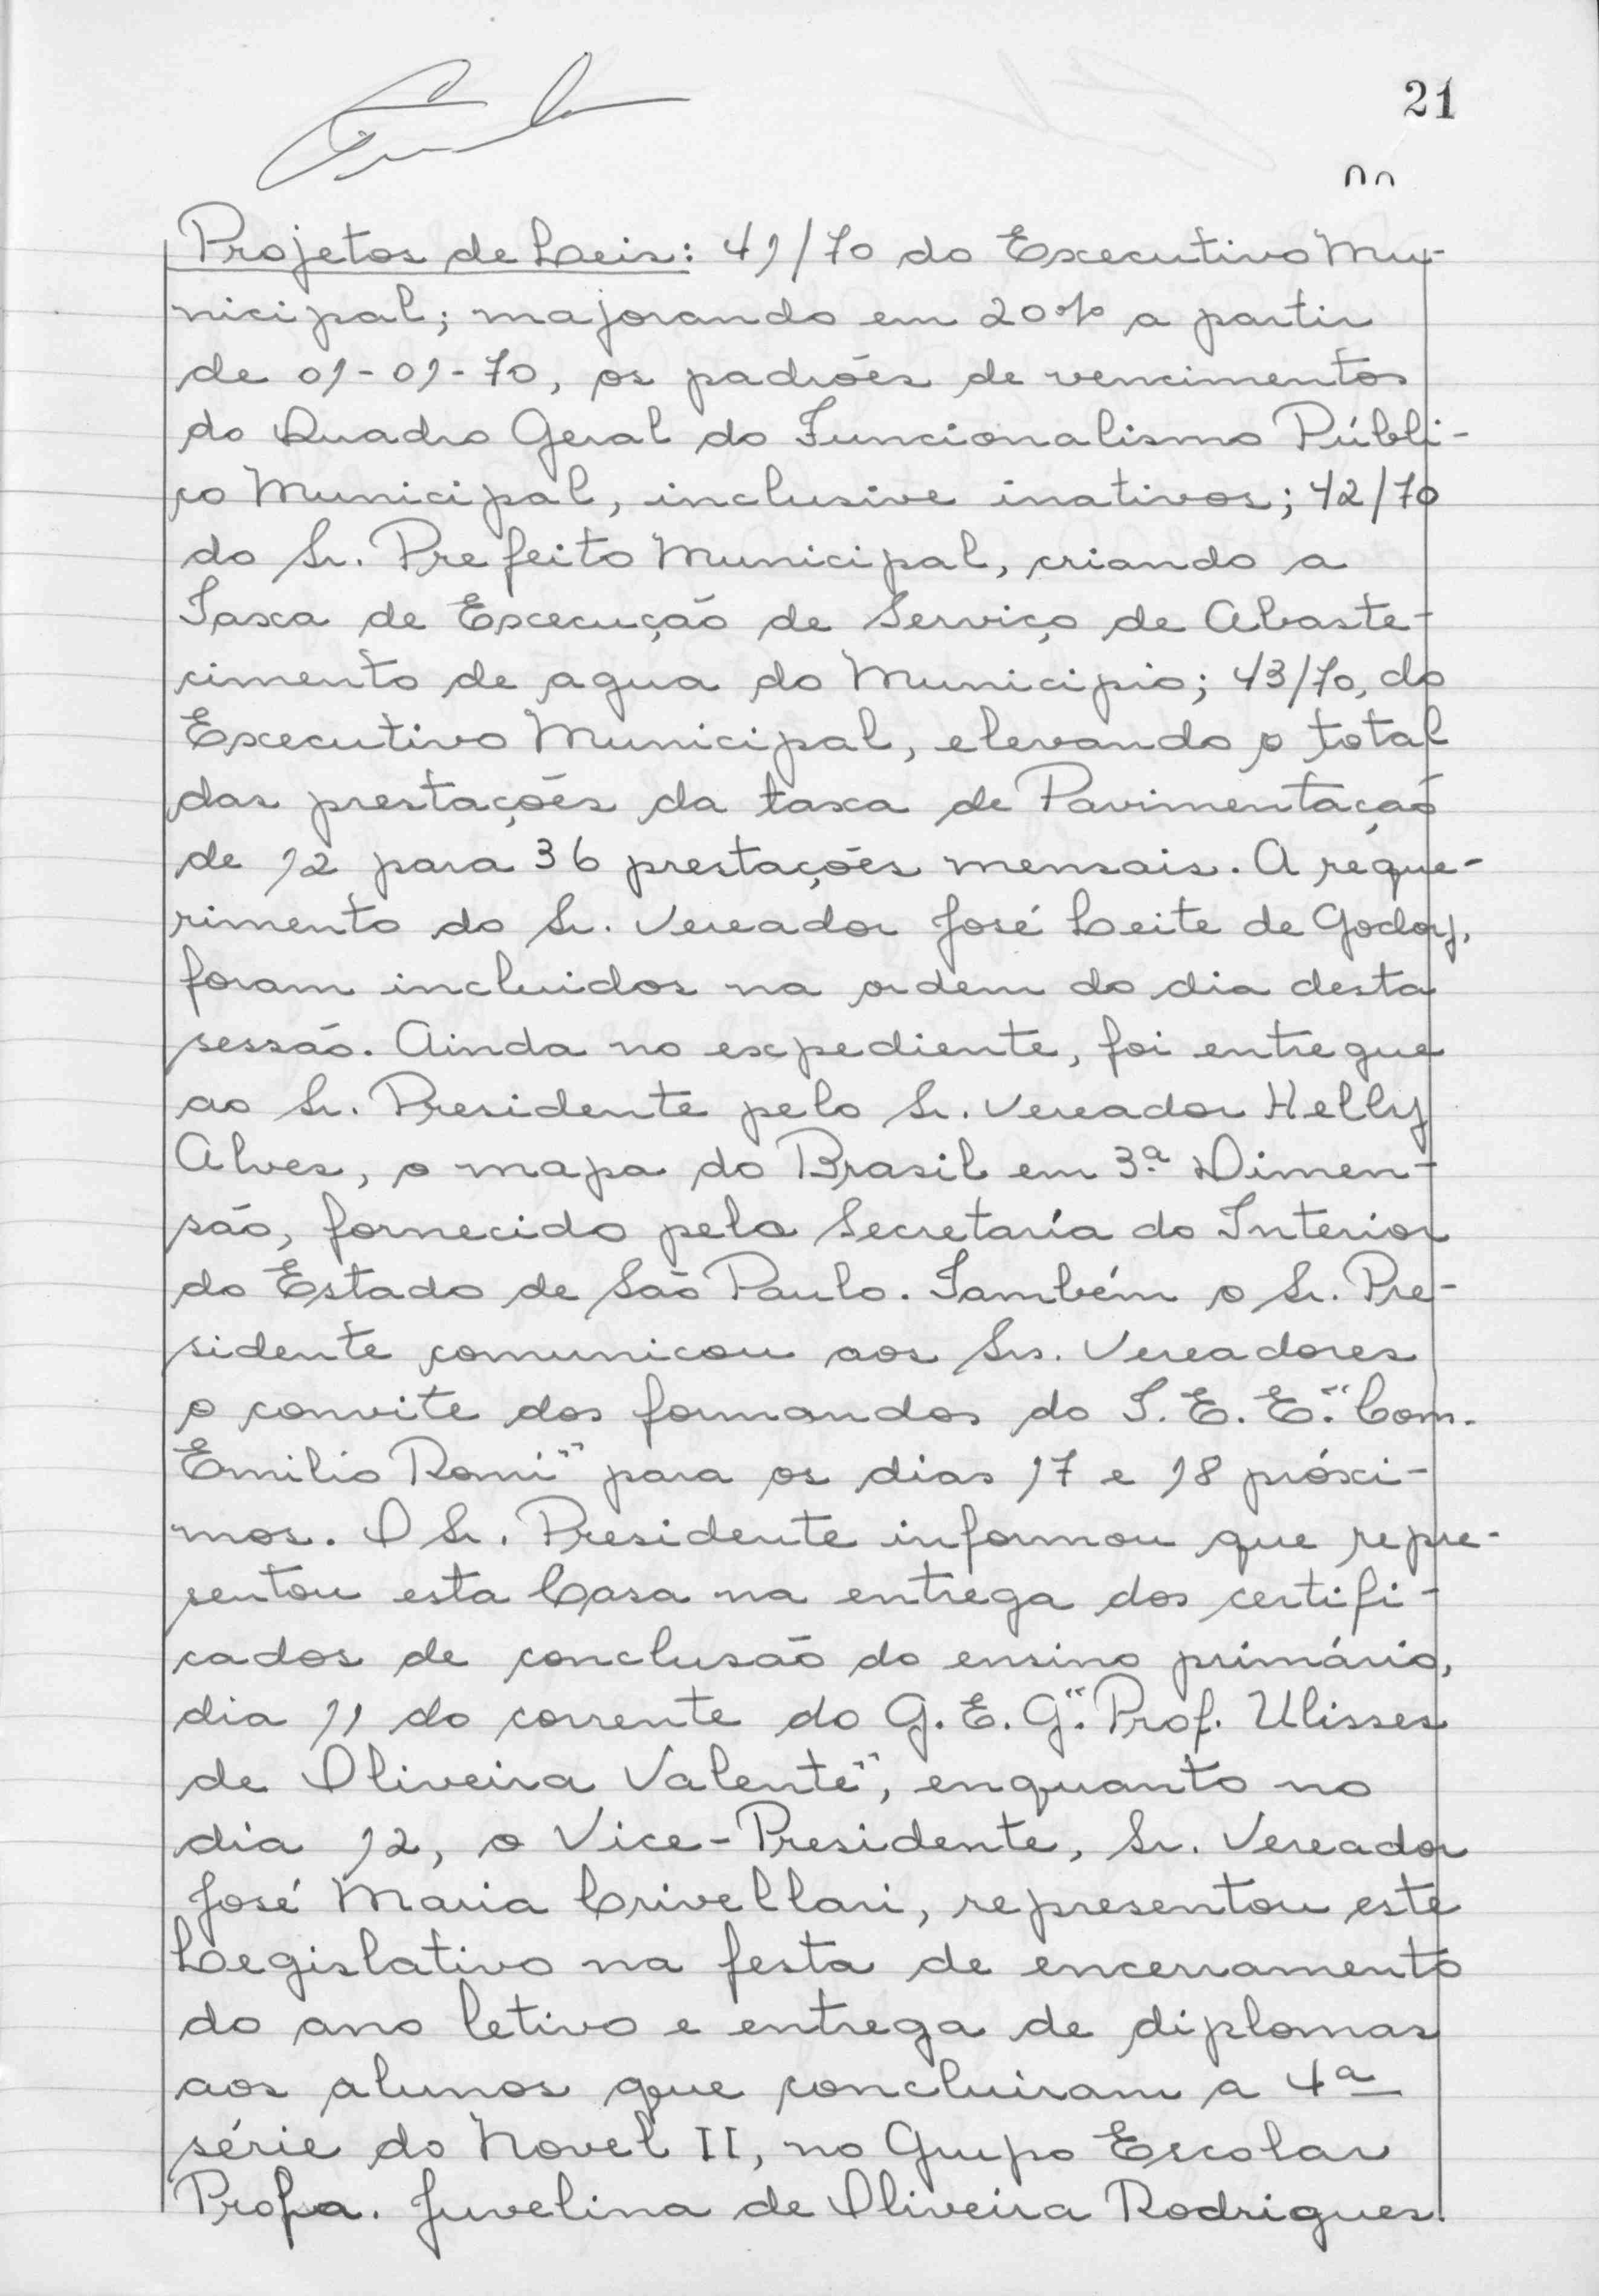 21
Projetos de Leis: 41/70 do Executivo Mu-
nicipal; majorando em 20% a partir
de 01-01-70, os padrões de vencimentos
do Quadro Geral do Funcionalismo Públi-
co Municipal, inclusive inativos; 42/70
do Sr. Prefeito Municipal, criando a
Taxa de Excecução de Serviço de Abaste-
cimento de agua do Municipio; 43/70, do
Executivo Municipal, elevando o total
das prestações da taxa de Pavimentação
de 12 para 36 prestações mensais. A reque-
rimento do Sr. Vereador José Leite de Godoy,
foram incluidos na ordem do dia desta
sessão. Ainda no expediente, foi entregue
ao Sr. Presidente pelo Sr. Vereador Helly
Alves, o mapa do Brasil em 3ª Dimen-
são, fornecido pela Secretaría do Interior
do Estado de São Paulo. Também o Sr. Pre-
sidente comunicou aos Srs. Vereadores
o convite dos formandos do I.E.E. "Com.
Emilio Romi" para os dias 17 e 18 próxi-
mos. O Sr. Presidente informou que repre-
sentou esta Casa na entrega dos certifi-
cados de conclusão do ensino primário,
dia 11 do corrente do G.E.G. "Prof. Ulisses
de Oliveira Valente", enquanto no
dia 12, o Vice-Presidente, Sr. Vereador
José Maria Crivellari, representou este
Legislativo na festa de encerramento
do ano letivo e entrega de diplomas
aos alunos que concluiram a 4ª
série do Novel II, no Grupo Escolar
Profa. Juvelina de Oliveira Rodrigues.